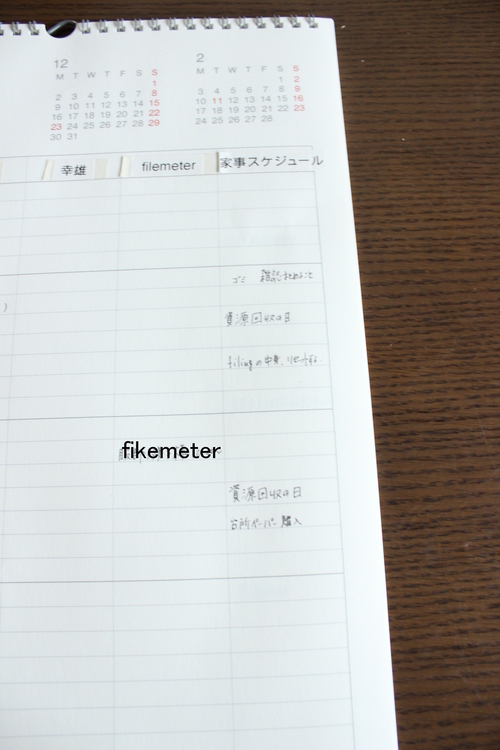 12 2
M T W T F S S M T W T F S S
1 1 2
2 3 4 5 6 7 8 3 4 5 6 7 8 9
9 10 11 12 13 14 15 10 11 12 13 14 15 16
16 17 18 19 20 21 22 17 18 19 20 21 22 23
23 24 25 26 27 28 29 24 25 26 27 28
30 31
幸雄 filemeter 家事スケジュール
ゴミ 雑誌まとめること
資源回収の日
filingの中身、リセットする
fikemeter
資源回収の日
台所ペーパー購入